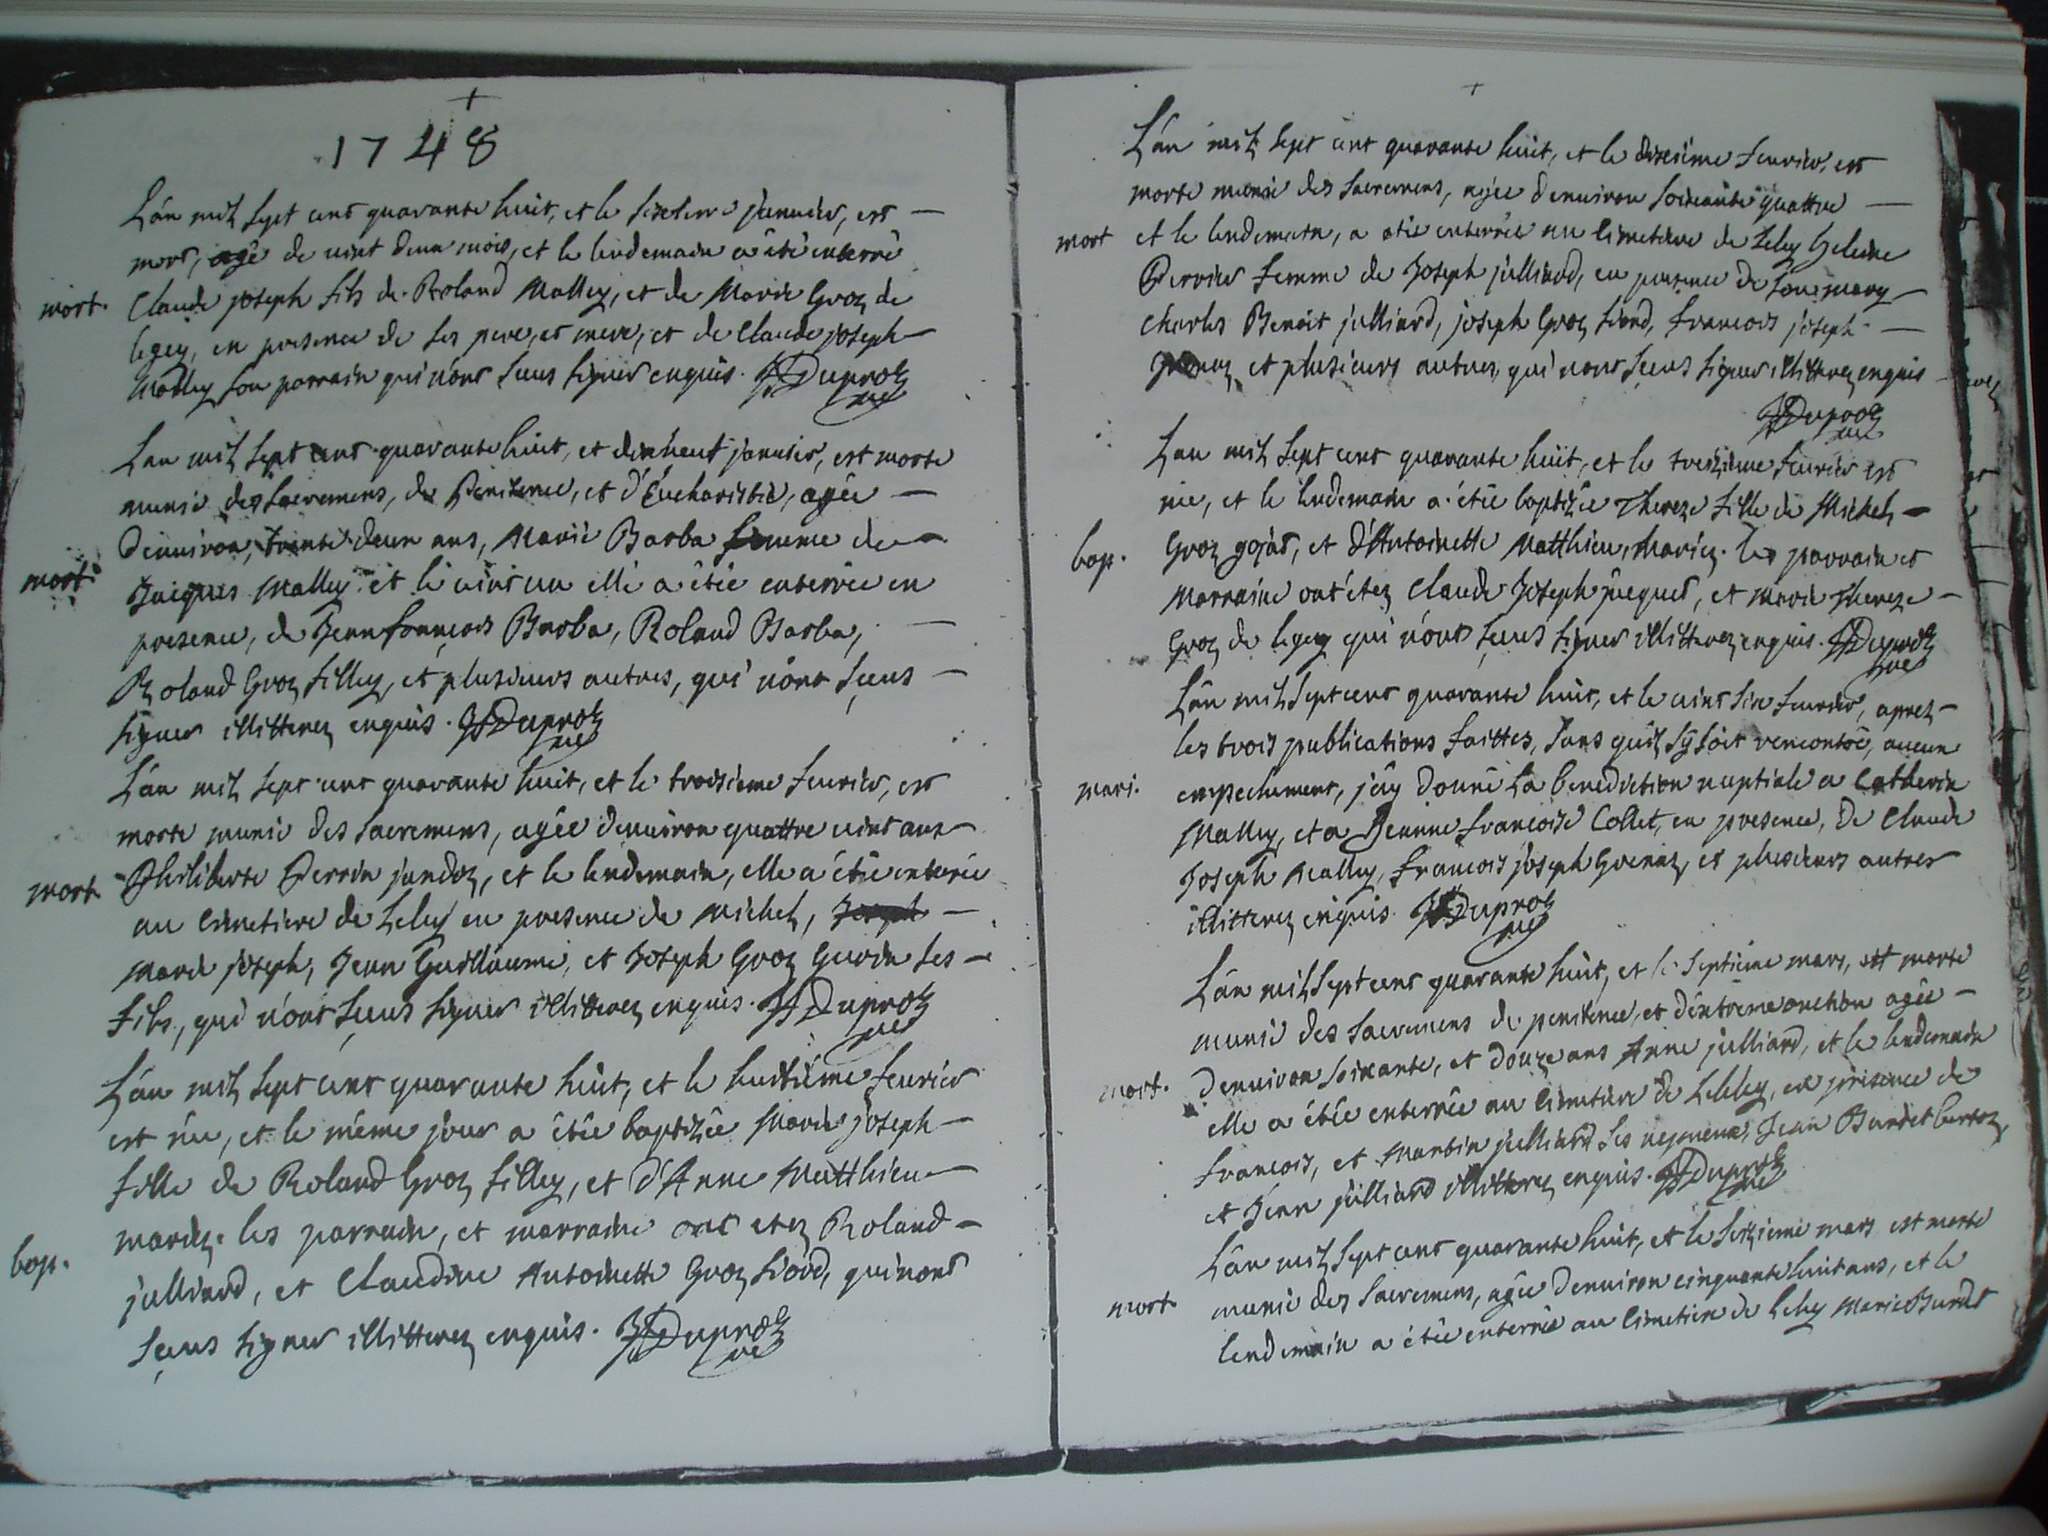 1748
L'an mil sept cent quarante huit, et le janvier, est
mort, agé de vint deux mois, et le lendemain a été enterré
mort. Claude joseph fils de Roland Malley, et de Marie Groz de
legey, en presence de ses pere, et mere, et de Claude joseph
Malley son parrain qui n'ont sceus signer enquis. Duproz
L'an mil sept cent quarante huit, et dixheut janvier, est morte
munie des sacremens, de Penitence, et d'Eucharistie, agée
d'environ, trente deux ans, Marie Barba femme de
mort. Jaiques Malley et le vint un elle a étée enterrée en
presence, de Jean françois Barba, Roland Barba,
Roland Groz filley, et plusieurs autres, qui n'ont sceus
signer illitterez enquis. Duproz
L'an mil sept cent quarante huit, et le troisieme fevrier, est
morte munie des sacremens, agée d'environ quattre vint ans
mort Philiberte Perrin jandoz, et le lendemain, elle a étée enterée
au cimetiere de Leley en presence de Michel, Joseph
Marie joseph, Jean Guillaume, et Joseph Groz Gurin ses
fils, qui n'ont sceus signer illitterez enquis. Duproz
L'an mil sept cent quarante huit, et le huitiéme fevrier
est née, et le méme jour a étée baptizée Marie joseph
fille de Roland Groz filley, et d'Anne Matthieu
mariez. les parrain, et marraine ont etez Roland
bap. julliard, et Claudine Antoinette Groz fiord, qui n'ont
sceus signer illitterez enquis. Duproz
L'an mil sept cent quarante huit, et le fevrier, est
morte munie des sacremens, agée d'environ soixante quattre
mort et le lendemain, a étée enterrée au cimetiere de Leley Heleine
Perrier femme de Joseph julliard, en presence de son mary
Charles Benoit julliard, joseph Groz fiord, francois joseph
et plusieurs autres, qui n'ont sceus signer illitterez enquis
Duproz
L'an mil sept cent quarante huit, et le treizieme fevrier est
née, et le lendemain a étée baptizée Thereze fille de Michel
bap. Groz gojat, et d'Antoinette Matthieu, mariez. Les parrain et
marraine ont étez Claude Joseph jaiquet, et Marie Thereze
Groz de legey qui n'ont sceus signer illitterez enquis. Duproz
L'an mil sept cent quarante huit, et le vint six fevrier, aprez
les trois publications faittes, sans qu'il sy soit rencontré, aucun
mari. empechement, j'ay donné La benediction nuptiale a Catherin
Malley, et a Jeanne francoise Collet, en presence, de Claude
Joseph Malley, francois joseph Grenaz, et plusieurs autres
illitterez enquis. Duproz
L'an mil sept cent quarante huit, et le septiéme mars, est morte
munie des sacremens de penitence, et d'extréme onction agée
mort. d'environ soixante, et douze ans Anne julliard, et le lendemain
elle a étée enterrée au cimetiere de Leley, en présence de
francois, et Martin julliard ses neveux, Jean Burdet
et Jean julliard illitterez enquis. Duproz
L'an mil sept cent quarante huit, et le mars est morte
mort munie des sacremens, agée d'environ cinquante huit ans, et le
lendemain a étée enterrée au cimetiere de Leley Marie Burdet